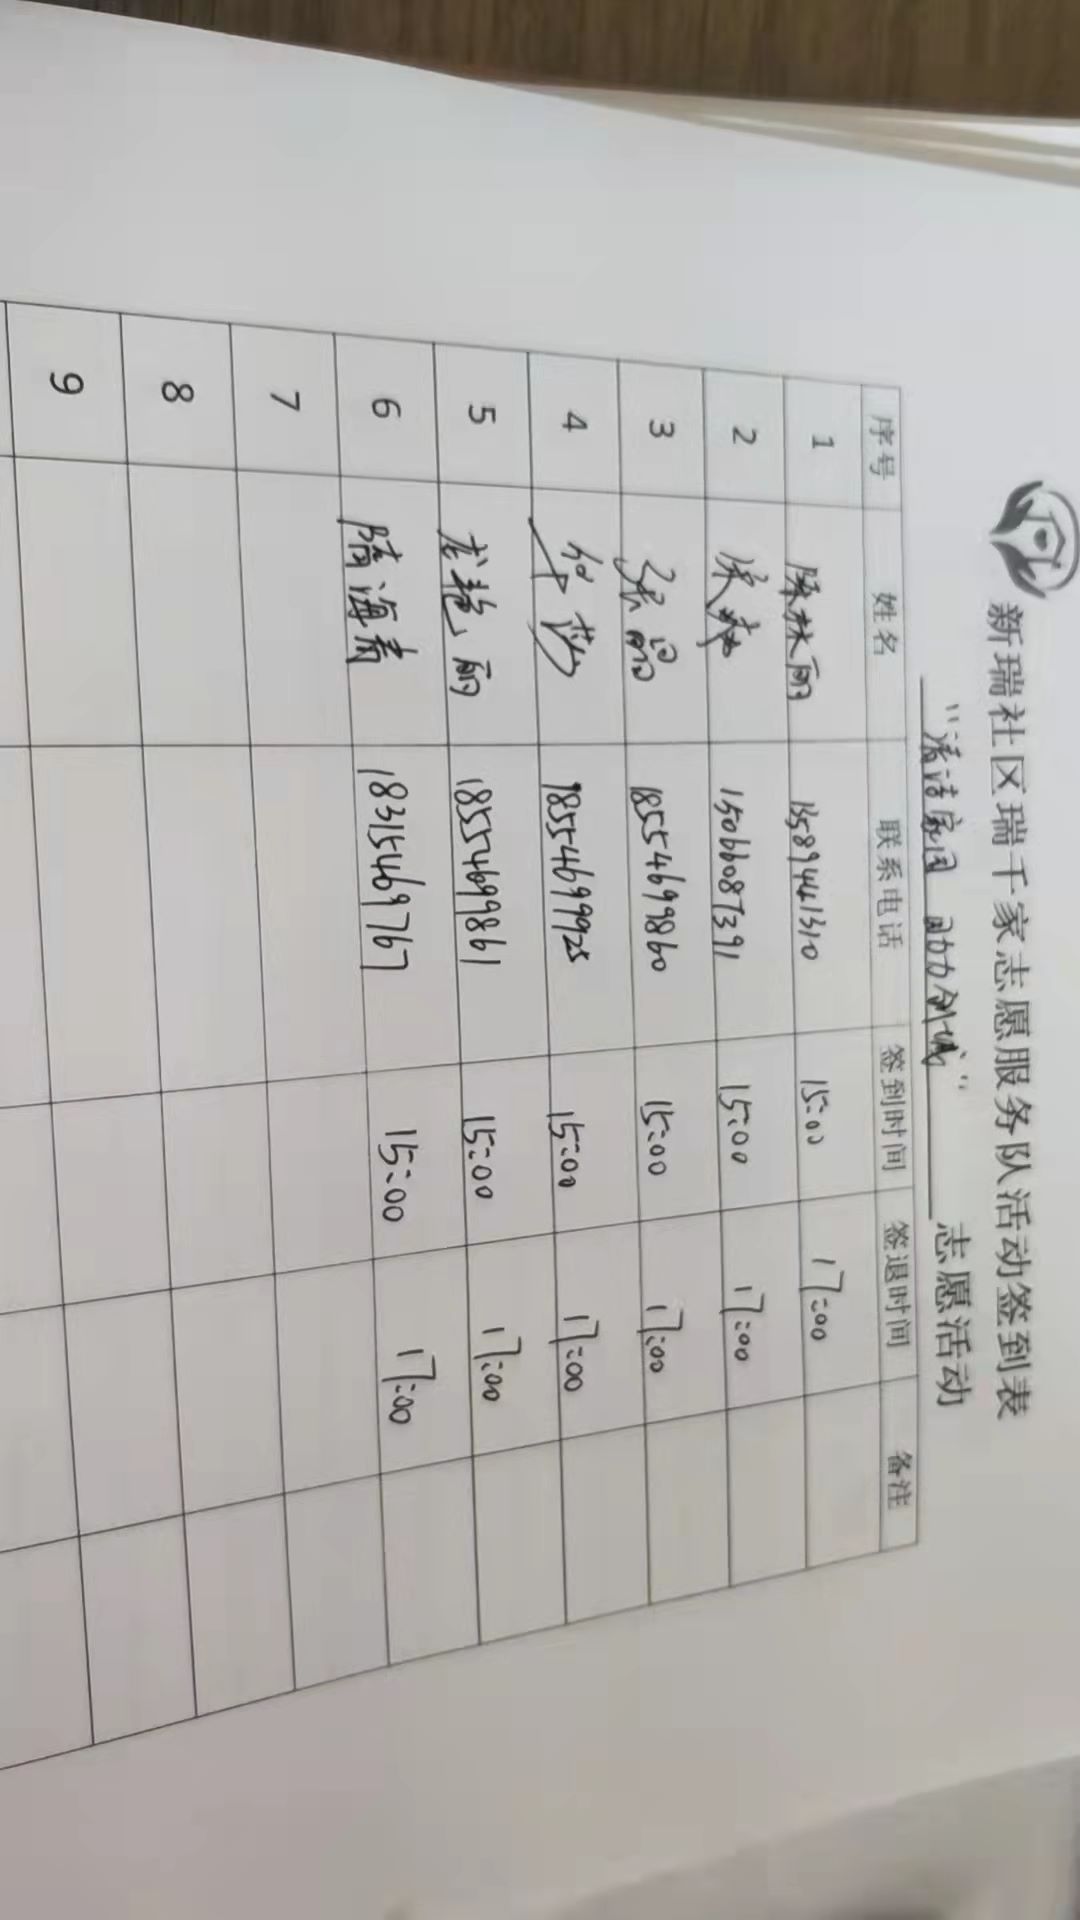 新瑞社区瑞千家志愿服务队活动签到表
"清洁家园 助力创城" 志愿活动
序号 姓名 联系电话 签到时间 签退时间 备注
1 林丽 13589441310 15:00 17:00
2 15066087391 15:00 17:00
3 张品 18554699860 15:00 17:00
4 18554699925 15:00 17:00
5 龙艳丽 18554699861 15:00 17:00
6 隋海青 18315469767 15:00 17:00
7
8
9